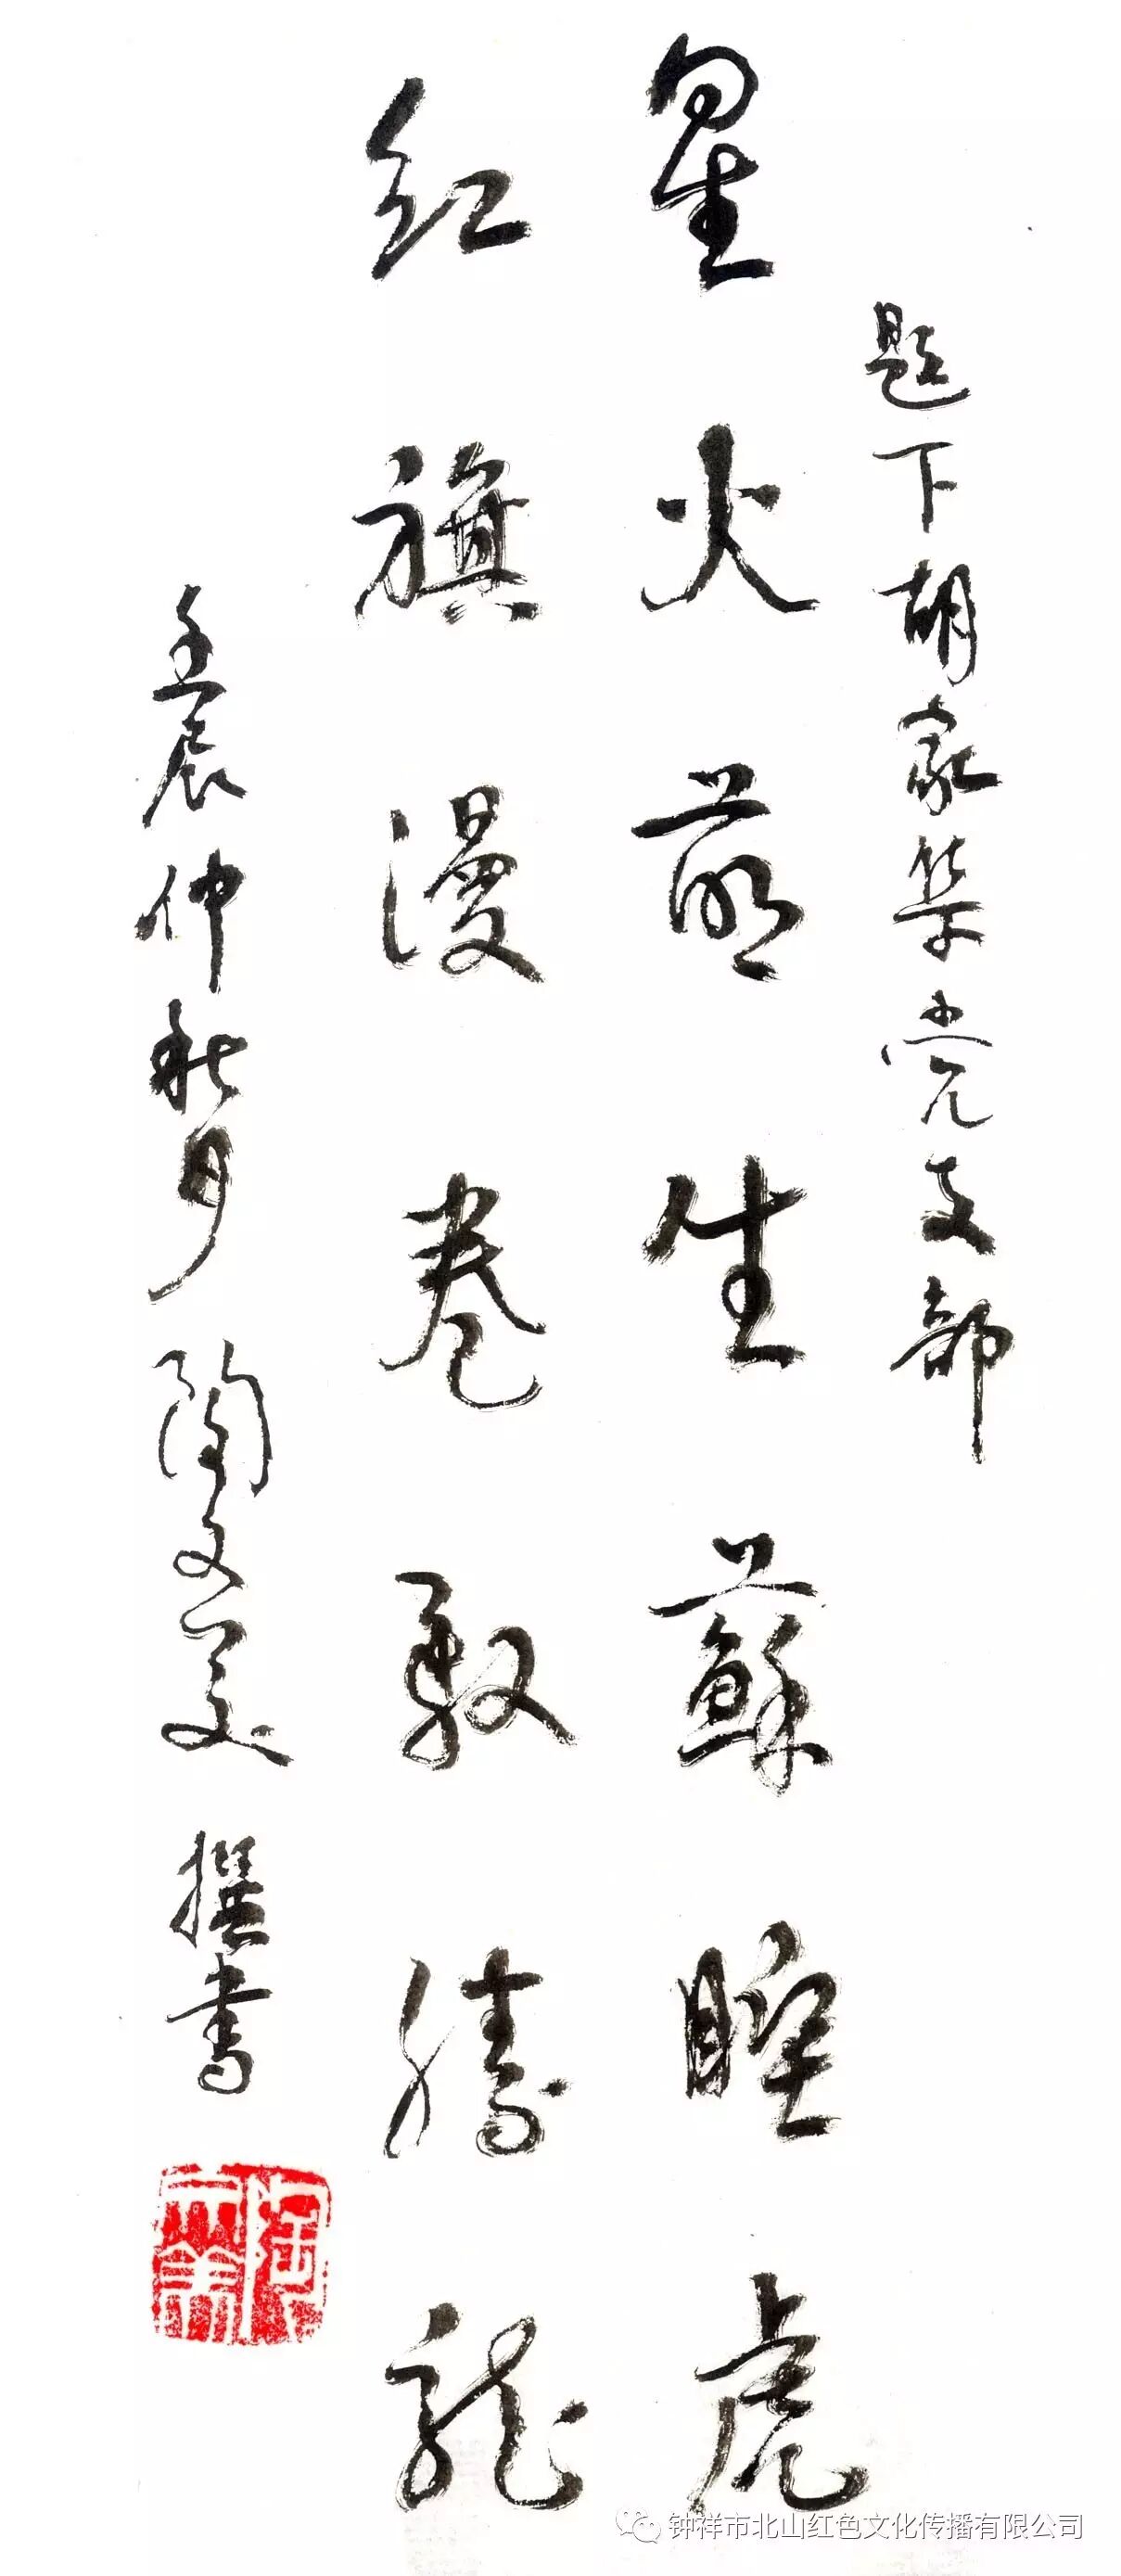 题下胡家党支部
星火萌生蘇睡虎
红旗漫卷腾龍
壬辰仲秋月 陶文美 撰書
钟祥市北山红色文化传播有限公司